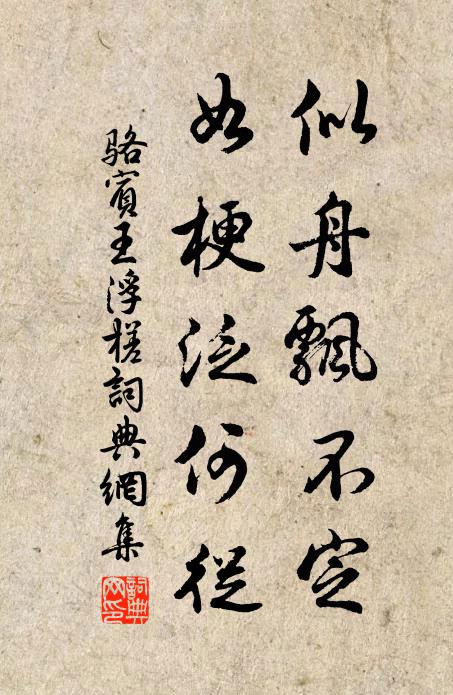 似舟飄不定
如梗泛何從
駱賓王浮槎詞典網集
詞典網印